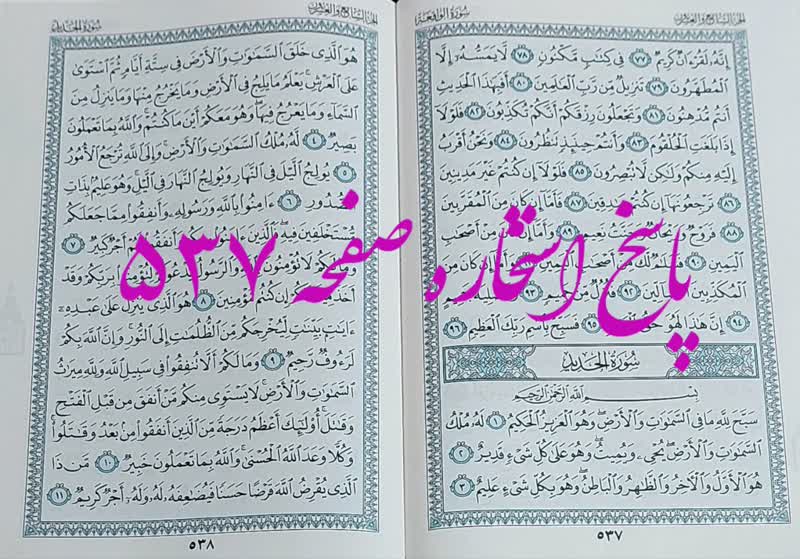 الجزء السابع والعشرون
سورة الواقعة
إِنَّهُ لَقُرْءَانٌ كَرِيمٌ ٧٧ فِي كِتَابٍ مَّكْنُونٍ ٧٨ لَّا يَمَسُّهُ إِلَّا
الْمُطَهَّرُونَ ٧٩ تَنزِيلٌ مِّن رَّبِّ الْعَالَمِينَ ٨٠ أَفَبِهَٰذَا الْحَدِيثِ
أَنتُم مُّدْهِنُونَ ٨١ وَتَجْعَلُونَ رِزْقَكُمْ أَنَّكُمْ تُكَذِّبُونَ ٨٢ فَلَوْلَا
إِذَا بَلَغَتِ الْحُلْقُومَ ٨٣ وَأَنتُمْ حِينَئِذٍ تَنظُرُونَ ٨٤ وَنَحْنُ أَقْرَبُ
إِلَيْهِ مِنكُمْ وَلَٰكِن لَّا تُبْصِرُونَ ٨٥ فَلَوْلَا إِن كُنتُمْ غَيْرَ مَدِينِينَ
٨٦ تَرْجِعُونَهَا إِن كُنتُمْ صَادِقِينَ ٨٧ فَأَمَّا إِن كَانَ مِنَ الْمُقَرَّبِينَ
٨٨ فَرَوْحٌ وَرَيْحَانٌ وَجَنَّتُ نَعِيمٍ ٨٩ وَأَمَّا إِن كَانَ مِنْ أَصْحَابِ
الْيَمِينِ ٩٠ فَسَلَامٌ لَّكَ مِنْ أَصْحَابِ الْيَمِينِ ٩١ وَأَمَّا إِن كَانَ مِنَ
الْمُكَذِّبِينَ الضَّالِّينَ ٩٢ فَنُزُلٌ مِّنْ حَمِيمٍ ٩٣ وَتَصْلِيَةُ جَحِيمٍ
٩٤ إِنَّ هَٰذَا لَهُوَ حَقُّ الْيَقِينِ ٩٥ فَسَبِّحْ بِاسْمِ رَبِّكَ الْعَظِيمِ ٩٦
سورة الحديد
بِسْمِ اللَّهِ الرَّحْمَٰنِ الرَّحِيمِ
سَبَّحَ لِلَّهِ مَا فِي السَّمَاوَاتِ وَالْأَرْضِ وَهُوَ الْعَزِيزُ الْحَكِيمُ ١ لَهُ مُلْكُ
السَّمَاوَاتِ وَالْأَرْضِ يُحْيِي وَيُمِيتُ وَهُوَ عَلَىٰ كُلِّ شَيْءٍ قَدِيرٌ ٢
هُوَ الْأَوَّلُ وَالْآخِرُ وَالظَّاهِرُ وَالْبَاطِنُ وَهُوَ بِكُلِّ شَيْءٍ عَلِيمٌ ٣
٥٣٧
الجزء السابع والعشرون
سورة الحديد
هُوَ الَّذِي خَلَقَ السَّمَاوَاتِ وَالْأَرْضَ فِي سِتَّةِ أَيَّامٍ ثُمَّ اسْتَوَىٰ
عَلَى الْعَرْشِ يَعْلَمُ مَا يَلِجُ فِي الْأَرْضِ وَمَا يَخْرُجُ مِنْهَا وَمَا يَنزِلُ مِنَ
السَّمَاءِ وَمَا يَعْرُجُ فِيهَا وَهُوَ مَعَكُمْ أَيْنَ مَا كُنتُمْ وَاللَّهُ بِمَا تَعْمَلُونَ
بَصِيرٌ ٤ لَّهُ مُلْكُ السَّمَاوَاتِ وَالْأَرْضِ وَإِلَى اللَّهِ تُرْجَعُ الْأُمُورُ
٥ يُولِجُ اللَّيْلَ فِي النَّهَارِ وَيُولِجُ النَّهَارَ فِي اللَّيْلِ وَهُوَ عَلِيمٌ بِذَاتِ
الصُّدُورِ ٦ ءَامِنُوا بِاللَّهِ وَرَسُولِهِ وَأَنفِقُوا مِمَّا جَعَلَكُم
مُّسْتَخْلَفِينَ فِيهِ فَالَّذِينَ ءَامَنُوا مِنكُمْ وَأَنفَقُوا لَهُمْ أَجْرٌ كَبِيرٌ ٧
وَمَا لَكُمْ لَا تُؤْمِنُونَ بِاللَّهِ وَالرَّسُولُ يَدْعُوكُمْ لِتُؤْمِنُوا بِرَبِّكُمْ وَقَدْ
أَخَذَ مِيثَاقَكُمْ إِن كُنتُم مُّؤْمِنِينَ ٨ هُوَ الَّذِي يُنَزِّلُ عَلَىٰ عَبْدِهِ
ءَايَاتٍ بَيِّنَاتٍ لِّيُخْرِجَكُم مِّنَ الظُّلُمَاتِ إِلَى النُّورِ وَإِنَّ اللَّهَ بِكُمْ
لَرَءُوفٌ رَّحِيمٌ ٩ وَمَا لَكُمْ أَلَّا تُنفِقُوا فِي سَبِيلِ اللَّهِ وَلِلَّهِ مِيرَاثُ
السَّمَاوَاتِ وَالْأَرْضِ لَا يَسْتَوِي مِنكُم مَّنْ أَنفَقَ مِن قَبْلِ الْفَتْحِ
وَقَاتَلَ أُولَٰئِكَ أَعْظَمُ دَرَجَةً مِّنَ الَّذِينَ أَنفَقُوا مِن بَعْدُ وَقَاتَلُوا
وَكُلًّا وَعَدَ اللَّهُ الْحُسْنَىٰ وَاللَّهُ بِمَا تَعْمَلُونَ خَبِيرٌ ١٠ مَّن ذَا
الَّذِي يُقْرِضُ اللَّهَ قَرْضًا حَسَنًا فَيُضَاعِفَهُ لَهُ وَلَهُ أَجْرٌ كَرِيمٌ ١١
٥٣٨
پاسخ استخاره صفحه ۵۳۷